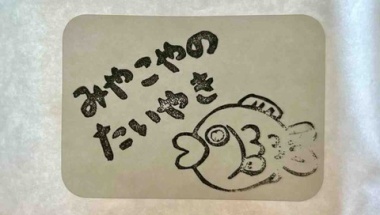 みやこやの
たいやき